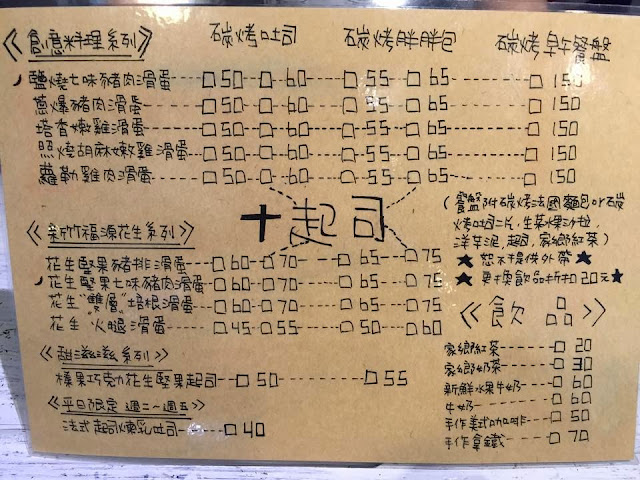 《創意料理系列》 碳烤吐司 碳烤胖胖包 碳烤早午餐盤
鹽燒七味豬肉滑蛋 50 60 55 65 150
蔥爆豬肉滑蛋 50 60 55 65 150
塔香嫩雞滑蛋 50 60 55 65 150
照燒胡麻嫩雞滑蛋 50 60 55 65 150
蘿勒雞肉滑蛋 50 60 55 65 150
+起司
(餐盤附碳烤法國麵包or碳
烤吐司二片,生菜果沙拉
洋芋泥,起司,家鄉紅茶)
★恕不提供外帶★
★更換飲品折扣20元★
《新竹福源花生系列》
花生堅果豬排滑蛋 60 70 65 75
花生堅果七味豬肉滑蛋 60 70 65 75
花生"雙層"培根滑蛋 60 70 65 75
花生"火腿滑蛋 45 55 50 60
《甜滋滋系列》
榛果巧克力花生堅果起司 50 55
《平日限定 週二~週五》
法式起司煉乳吐司 40
《飲品》
家鄉紅茶 20
家鄉奶茶 30
新鮮水果牛奶 60
牛奶 60
手作美式咖啡 50
手作拿鐵 70